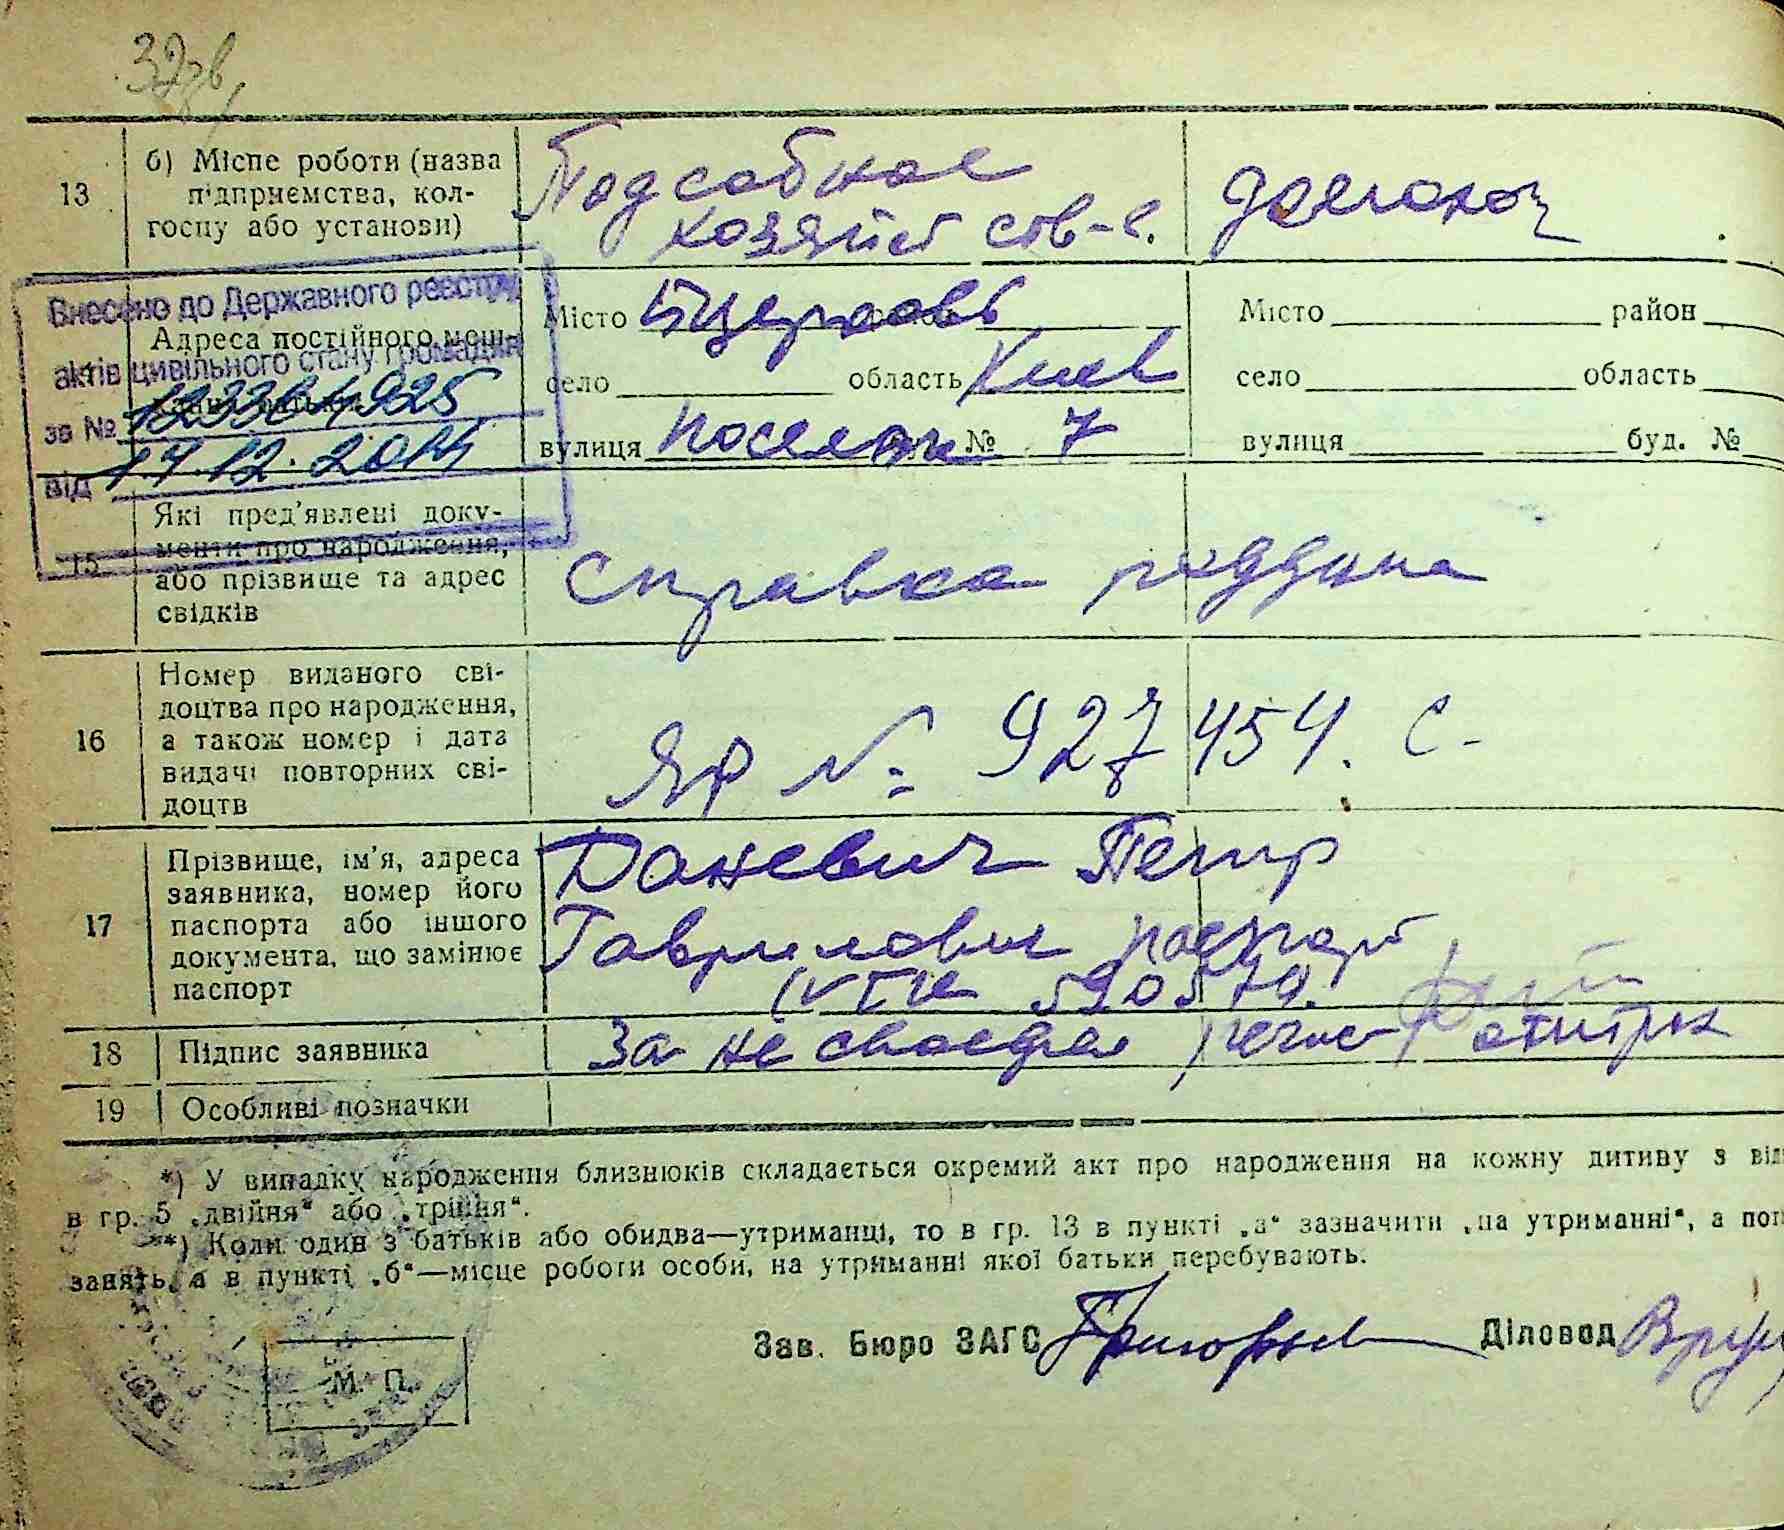 13 б) Місце роботи (назва підприємства, колгоспу або установи)
Подсобное
хозяйств-о.
Внесено до Державного реєстру
актів цивільного стану громадян
за №
від 17.12.2014
Адреса постійного меш-
Місто Бцерковь
село область Киев
вулиця поселок № 7
Місто район
село область
вулиця буд. №
15 Які пред'явлені доку-
менти про народження,
або прізвище та адрес
свідків
Справка роддома
16 Номер виданого сві-
доцтва про народження,
а також номер і дата
видачі повторних сві-
доцтв
ЯР № 927454. С-
17 Прізвище, ім'я, адреса
заявника, номер його
паспорта або іншого
документа, що замінює
паспорт
Даневич Петр
Гаврилович паспорт
590579.
18 Підпис заявника
За не
19 Особливі позначки
*) У випадку народження близнюків складається окремий акт про народження на кожну дитину з
в гр. 5 „двійня“ або „трійня“.
**) Коли один з батьків або обидва—утриманці, то в гр. 13 в пункті „а“ зазначити „на утриманні“, а
занять, а в пункті „б“—місце роботи особи, на утриманні якої батьки перебувають.
Зав. Бюро ЗАГС Діловод
М. П.